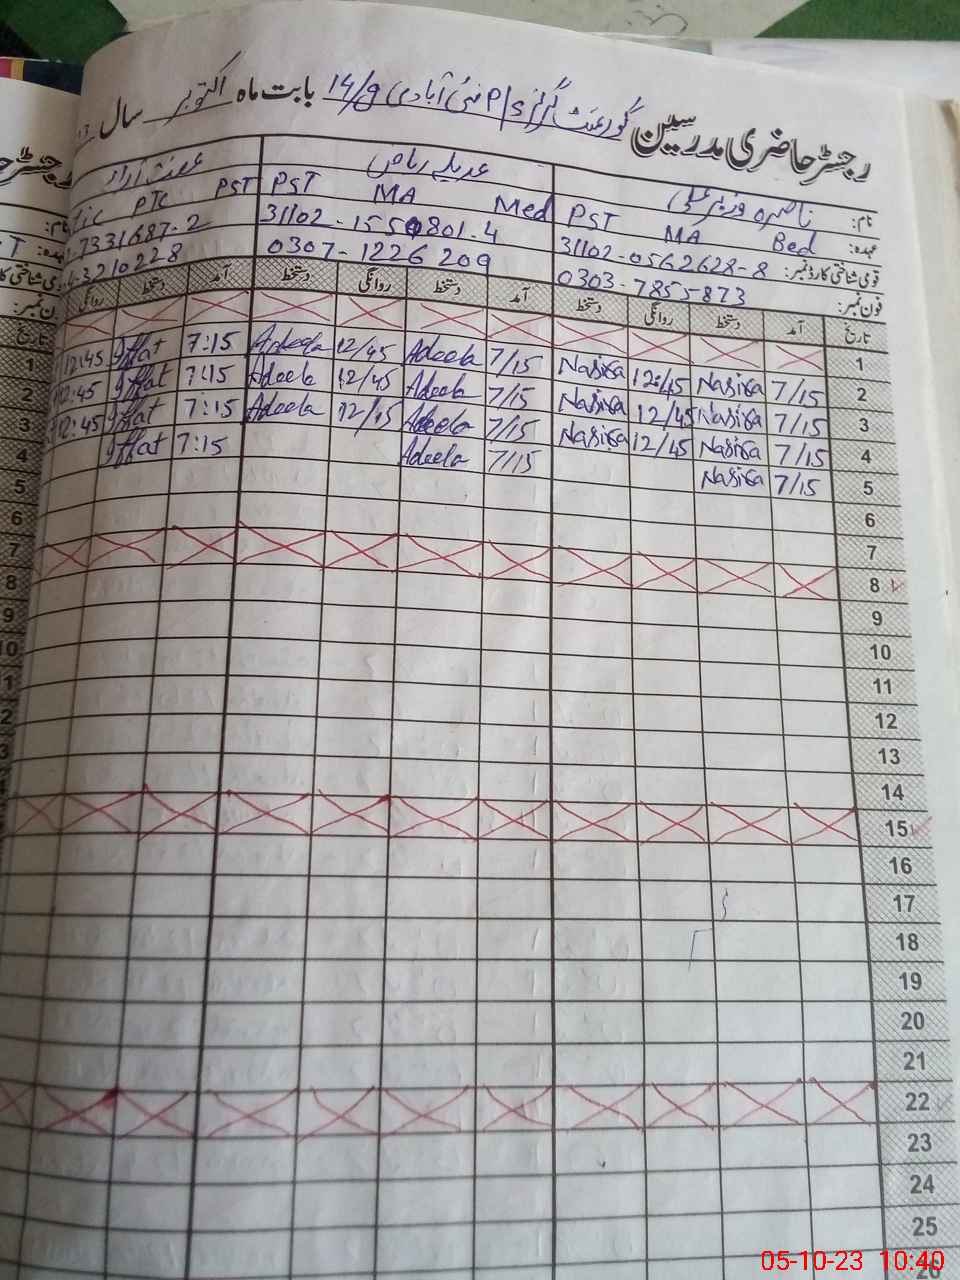 رجسٹر حاضری مدرسین گورنمنٹ گرلز P/S نئی آبادی 14/g بابت ماہ اکتوبر سال
نام: ناصرہ وزیر علی عدیلہ ریاض عفت آراء
عہدہ: PST MA Bed PST MA Med PST PTC
قومی شناختی کارڈ نمبر: 31102-0562628-8 31102-1550801-4 7331687-2
فون نمبر: 0303-7855873 0307-1226209 3210228
تاریخ آمد دستخط روانگی دستخط آمد دستخط روانگی دستخط آمد دستخط روانگی
1
2 7/15 Nasira 12:45 Nasira 7/15 Adeela 12/45 Adeela 7:15 Iffat 12:45
3 7/15 Nasira 12/45 Nasira 7/15 Adeela 12/45 Adeela 7:15 Iffat 12:45
4 7/15 Nasira 12/45 Nasira 7/15 Adeela 12/45 Adeela 7:15 Iffat 12:45
5 7/15 Nasira 7/15 Adeela 7:15 Iffat
6
7
8
9
10
11
12
13
14
15
16
17
18
19
20
21
22
23
24
25
26
05-10-23 10:40